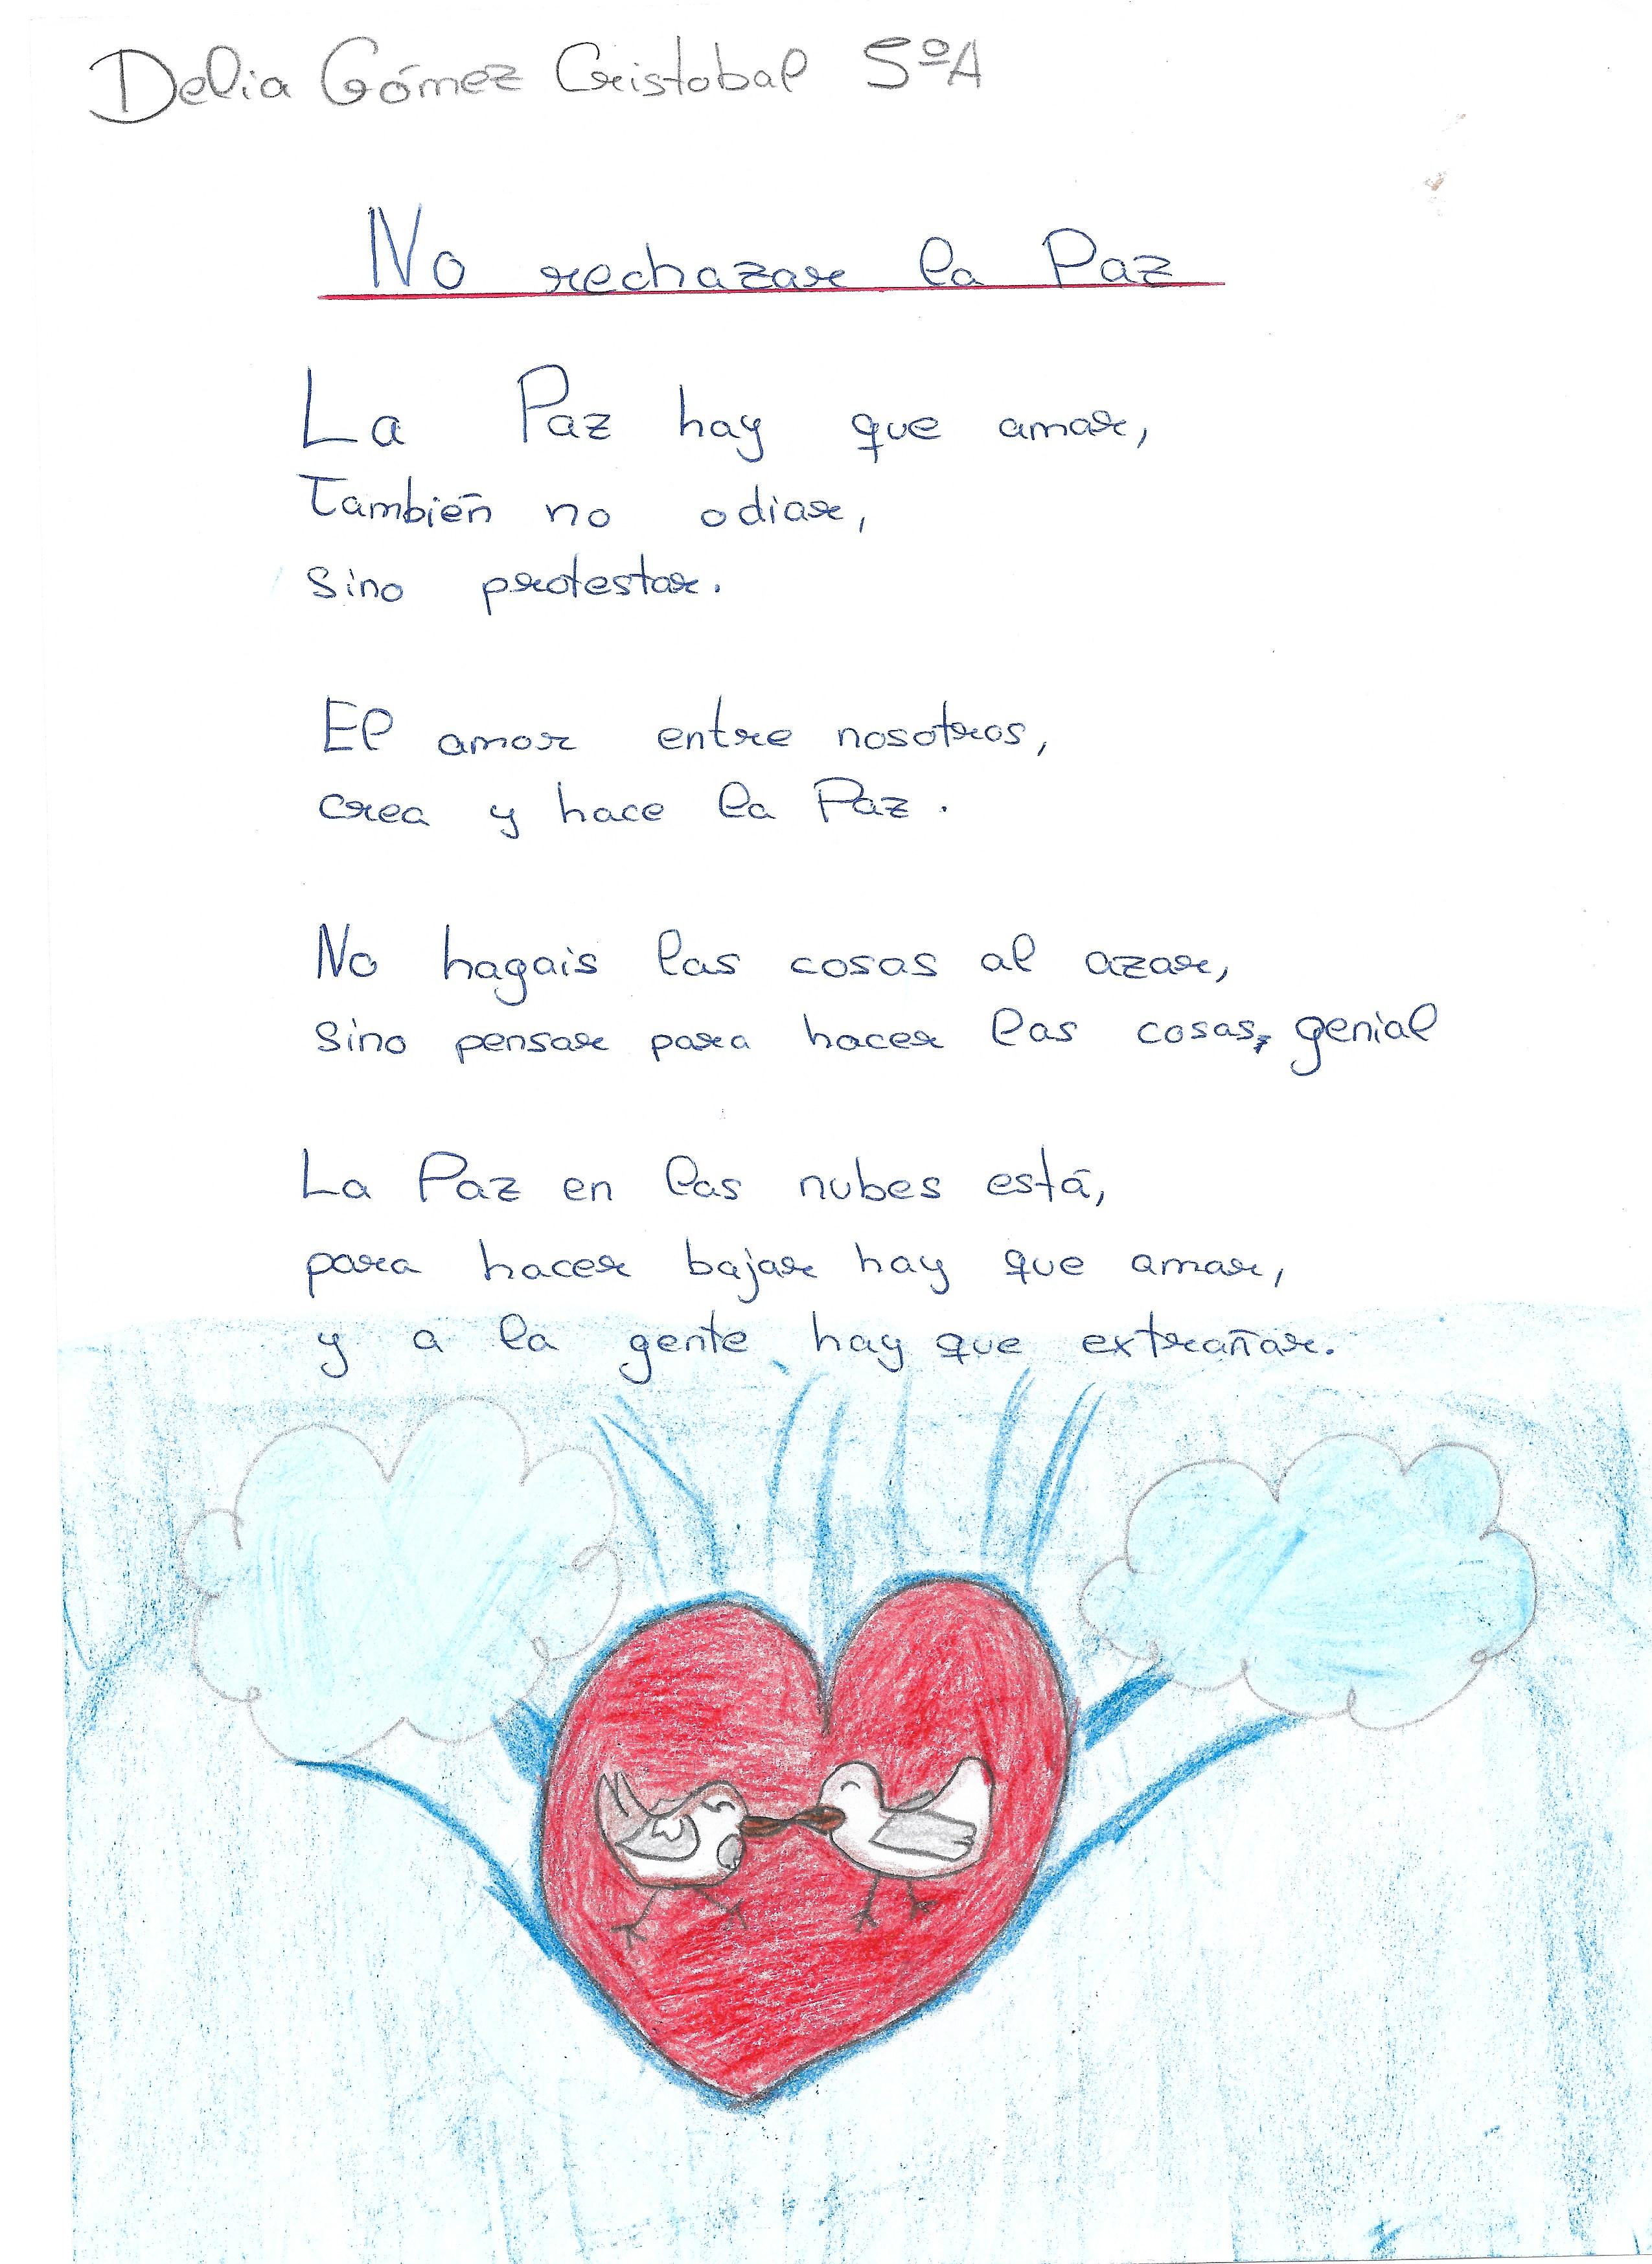 Delia Gómez Cristobal 5ºA
No rechazar la Paz
La Paz hay que amar,
También no odiar,
sino protestar.
El amor entre nosotros,
crea y hace la Paz.
No hagais las cosas al azar,
sino pensar para hacer las cosas, genial
La Paz en las nubes está,
para hacer bajar hay que amar,
y a la gente hay que extrañar.